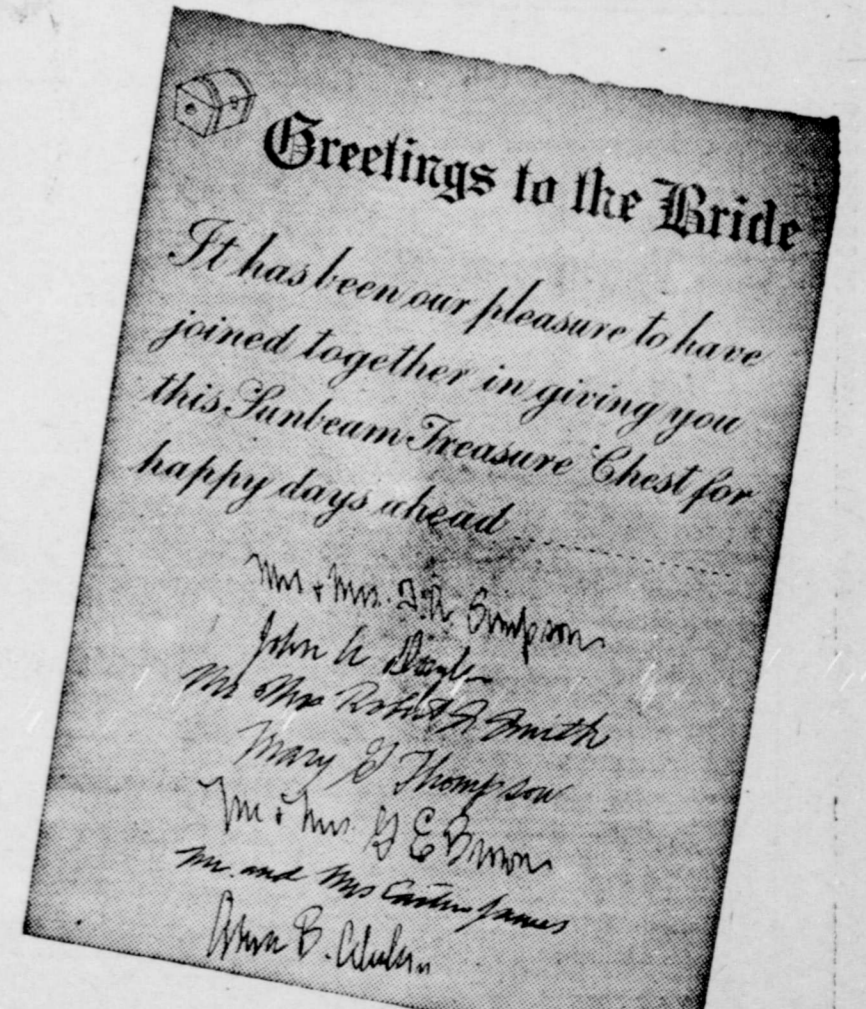 Greetings to the Bride
It has been our pleasure to have
joined together in giving you
this Sunbeam Treasure Chest for
happy days ahead
Mr & Mrs. J. R. Simpson
John A Doyle
Mr & Mrs Robert A Smith
Mary G Thompson
Mr & Mrs. G E Brown
Mr. and Mrs James
B.